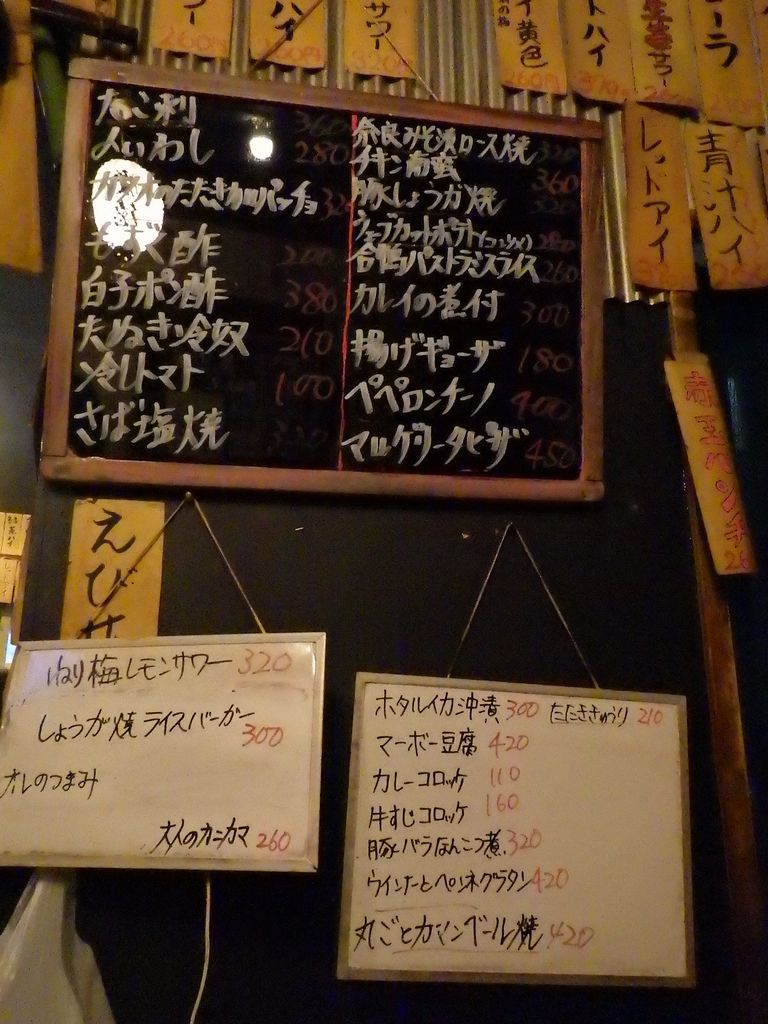 サワー
ハイ
イ黄色
トハイ
生姜サワー
コーラ
レッドアイ
青汁ハイ
たこ刺 360
〆いわし 280
カツオのたたきカルパッチョ 320
もずく酢 200
白子ポン酢 380
たぬき冷奴 210
冷しトマト 100
さば塩焼 320
奈良みそ漬ロース焼 320
チキン南蛮 360
豚しょうが焼 320
ウェーブカットポテト(コンソメ) 280
合鴨パストラミスライス 260
カレイの煮付 300
揚げギョーザ 180
ペペロンチーノ 400
マルゲリータピザ 450
赤玉パンチ
えびせ
ねり梅レモンサワー 320
しょうが焼ライスバーガー 300
オレのつまみ
大人のカニカマ 260
ホタルイカ沖漬 300 たたききゅうり 210
マーボー豆腐 420
カレーコロッケ 110
牛すじコロッケ 160
豚バラなんこつ煮 320
ウインナーとペンネグラタン 420
丸ごとカマンベール焼 420